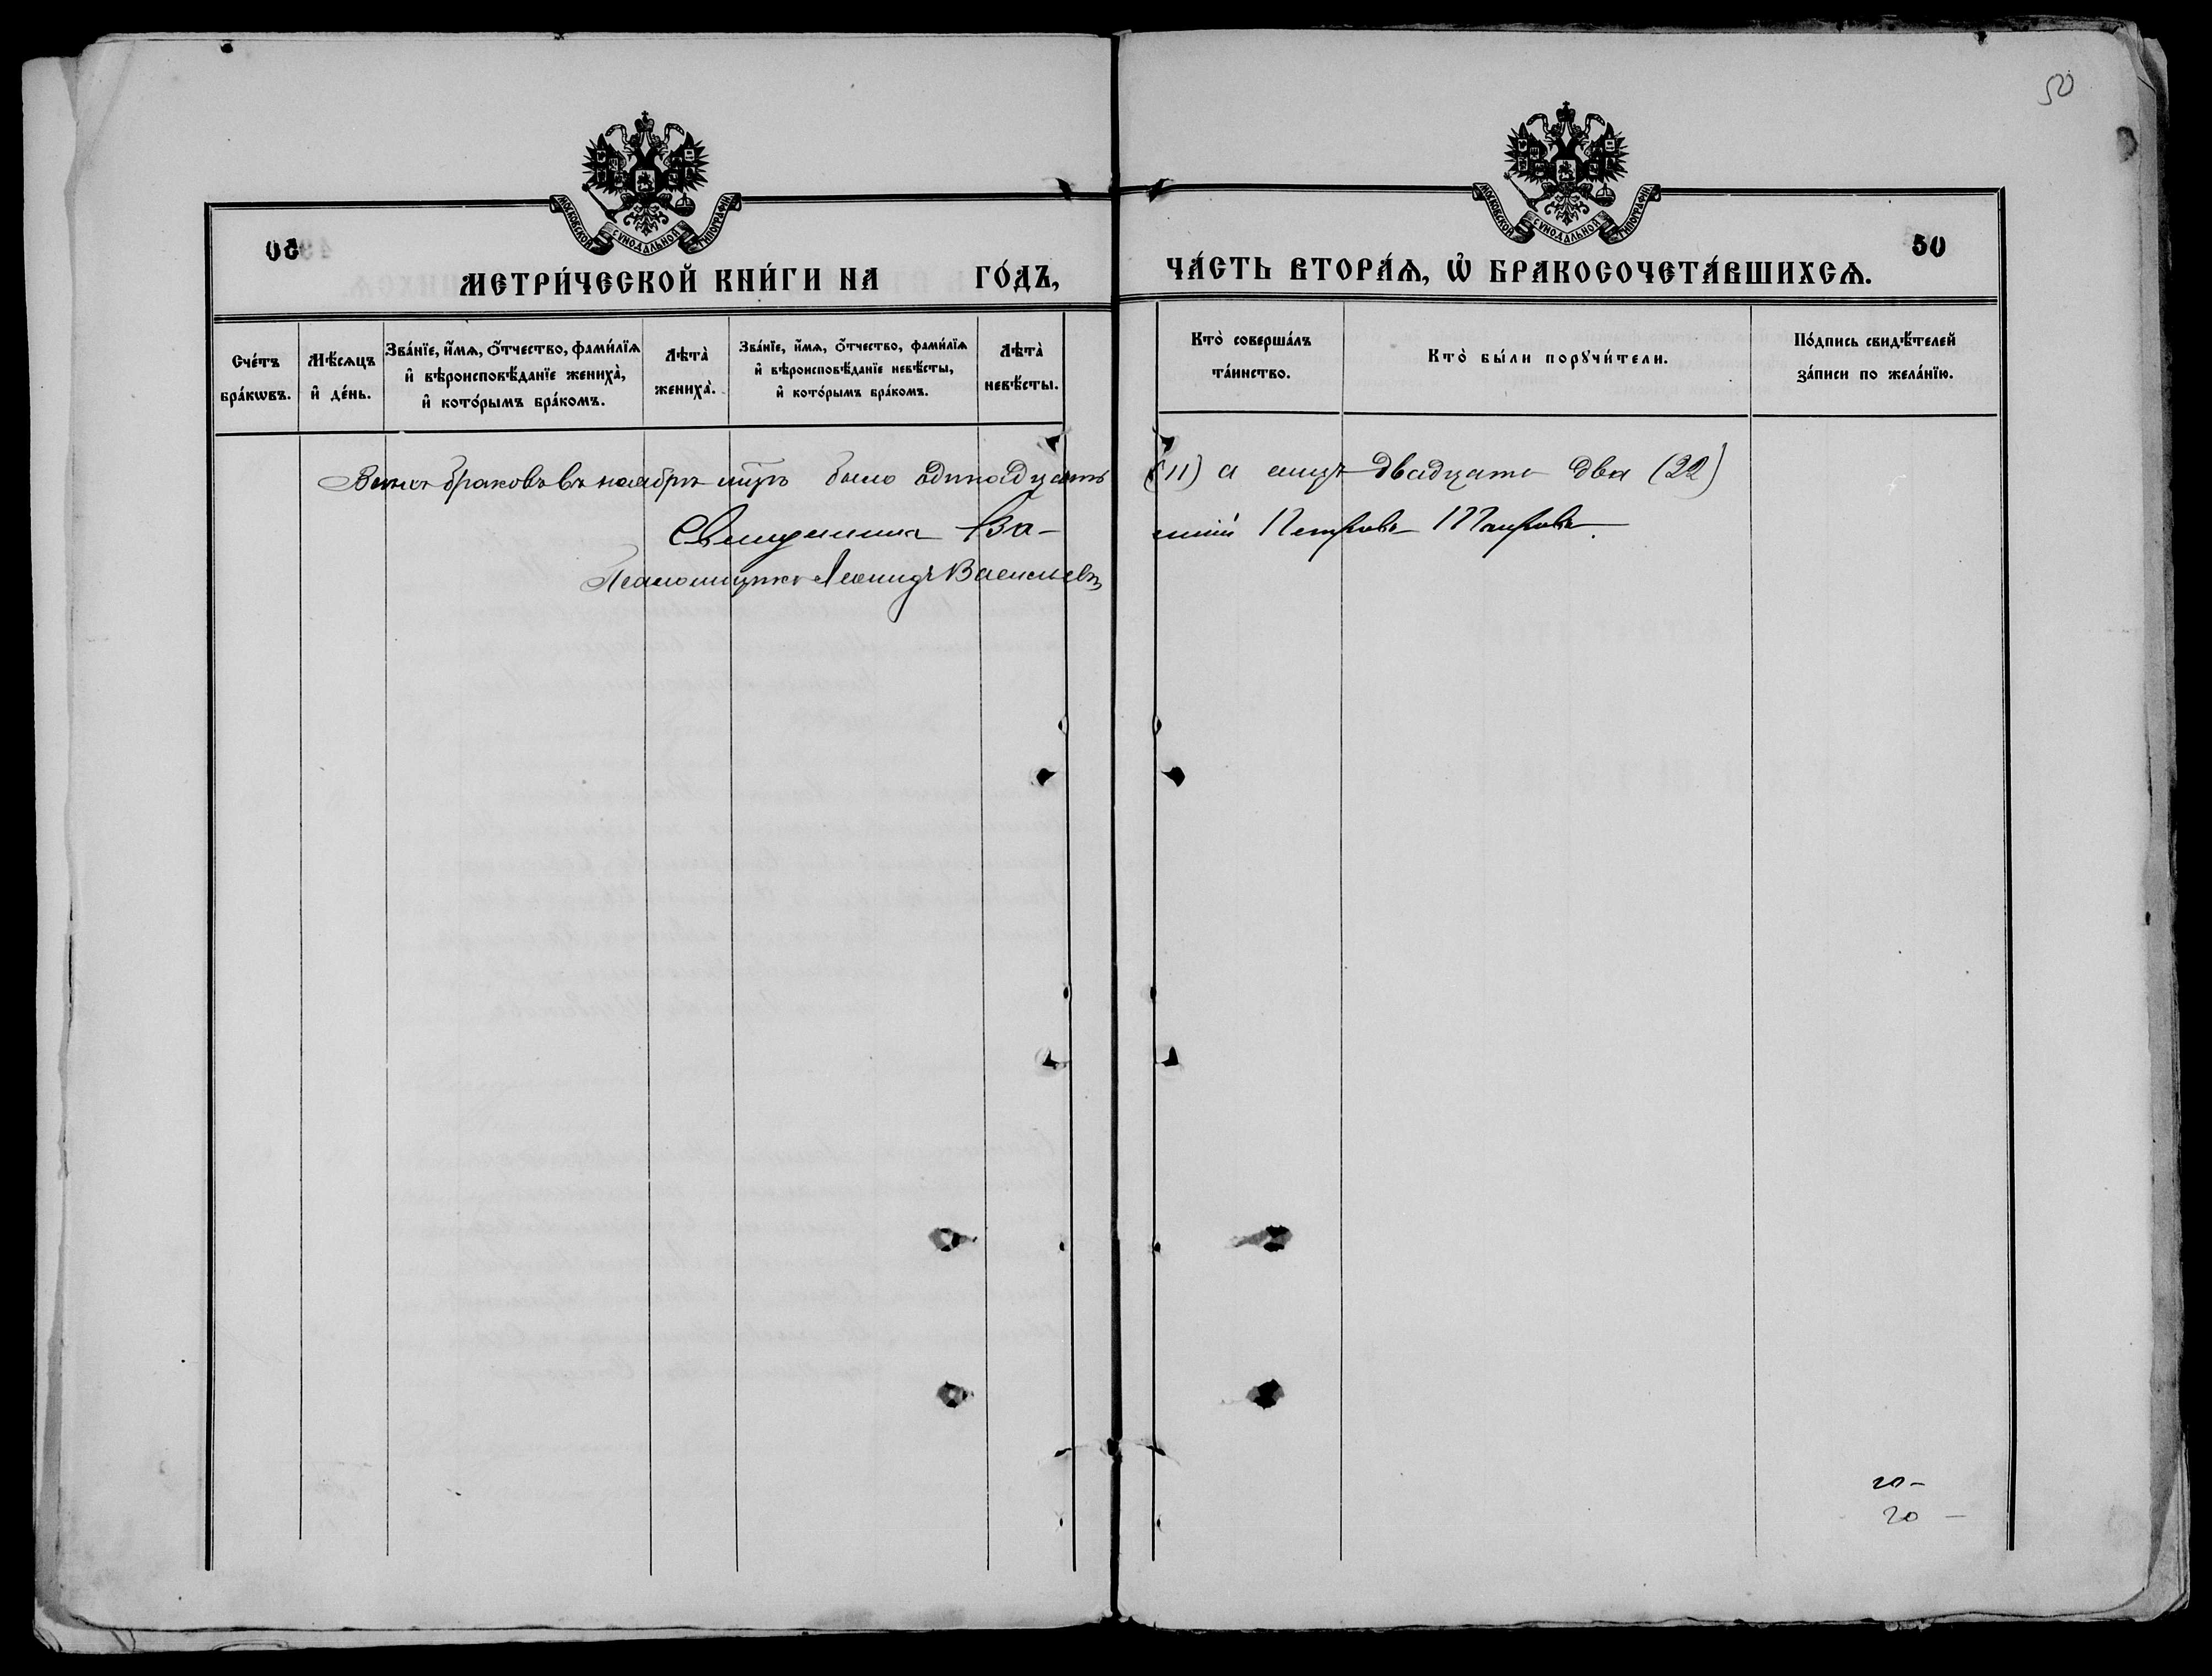 50
МОСКОВСКОЙ СУНОДАЛЬНОЙ ТИПОГРАФІИ
МОСКОВСКОЙ СУНОДАЛЬНОЙ ТИПОГРАФІИ
50
50
МЕТРИ́ЧЕСКОЙ КНИ́ГИ НА ГО́ДЪ,
ЧА́СТЬ ВТОРА́Ѧ, Ѽ БРАКОСОЧЕТА́ВШИХСѦ.
Сче́тъ бра́кѡвъ.
Мѣ́сѧцъ и҆ де́нь.
Зва́нїе, и҆́мѧ, о҆́тчество, фами́лїѧ и҆ вѣроисповѣ́данїе жениха̀, и҆ кото́рымъ бра́комъ.
Лѣта̀ жениха̀.
Зва́нїе, и҆́мѧ, о҆́тчество, фами́лїѧ и҆ вѣроисповѣ́данїе невѣ́сты, и҆ кото́рымъ бра́комъ.
Лѣта̀ невѣ́сты.
Кто̀ соверша́лъ та́инство.
Кто̀ бы́ли порꙋчи́тели.
По́дпись свидѣ́телей за́писи по жела́нїю.
Всѣхъ браковъ въ ноябрѣ мцѣ было одинадцать (11) а лицъ двадцать два (22)
Священникъ Ва- силій Петровъ
Псаломщикъ Леонидъ Васильевъ
20 –
20 –